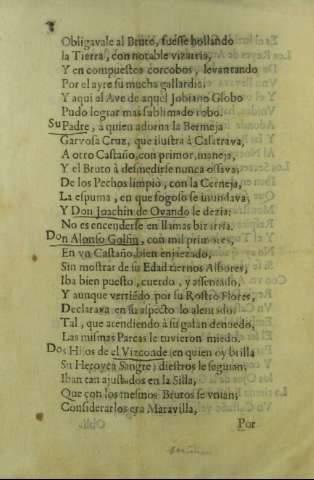 Obligavale al Bruto, fuesse hollando
la Tierra, con notable vizarria,
Y en compuestos corcobos, levantando
Por el ayre su mucha gallardia.
Y aqui el Ave de aquel Jobiano Globo
Pudo lograr mas sublimado robo.
Su Padre, a quien adorna la Bermeja
Garvosa Cruz, que ilustra à Calatrava,
A otro Castaño, con primor, maneja,
Y el Bruto à desmedirse nunca ossava;
De los Pechos limpio, con la Cerneja,
La espuma, en que fogoso se inundava;
Y Don Joachin de Ovando le dezia:
No es encenderse en llamas bizarria.
Don Alonso Golfin, con mil primores,
En vn Castaño, bien enjaezado,
Sin mostrar de su Edad tiernos Albores,
Iba bien puesto, cuerdo, y assentado,
Y aunque vertiẽdo por su Rostro Flores,
Declarava en su aspecto lo alentado.
Tal, que atendiendo à su galan denuedo,
Las mismas Parcas le tuvieron miedo.
Dos Hijos de el Vizconde (en quien oy brilla
Su Heroyca Sangre) diestros le seguian;
Iban tan ajustados en la Silla,
Que con los mesmos Brutos se vnian;
Considerarlos era Maravilla,
Por